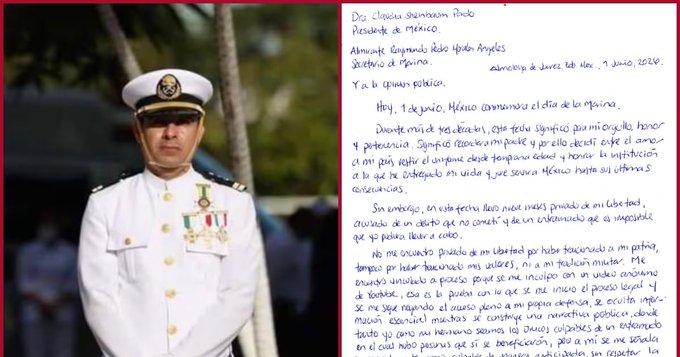 Dra. Claudia Sheinbaum Pardo
Presidente de México.
Almirante Raymundo Pedro Morales Ángeles
Secretario de Marina.
Almoloya de Juárez, Edo. Mex., 1 Junio, 2026
Y a la opinión pública.
Hoy, 1 de junio, México conmemora el día de la Marina.
Durante más de tres décadas, esta fecha significó para mi orgullo, honor
y pertenencia. Significó recordar a mi padre y por ello decidí entre el amor
a mi país vestir el uniforme desde temprana edad y honrar la institución
a la que he entregado mi vida y juré servir a México hasta sus últimas
consecuencias.
Sin embargo, en esta fecha llevo nueve meses privado de mi libertad,
acusado de un delito que no cometí y de un entramado que es imposible
que yo pudiera llevar a cabo.
No me encuentro privado de mi libertad por haber traicionado a mi patria,
tampoco por haber traicionado mis valores, ni a mi tradición militar. Me
encuentro vinculado a proceso porque se me inculpó con un video anónimo
de Youtube, esa es la prueba con la que se me inició el proceso legal y
se me sigue negando el acceso pleno a mi propia defensa, se oculta infor-
mación esencial mientras se construye una narrativa pública, donde
tanto yo como mi hermano seamos los únicos culpables de un entramado
en el cual hubo personas que sí se beneficiaron, pero a mi se me señala